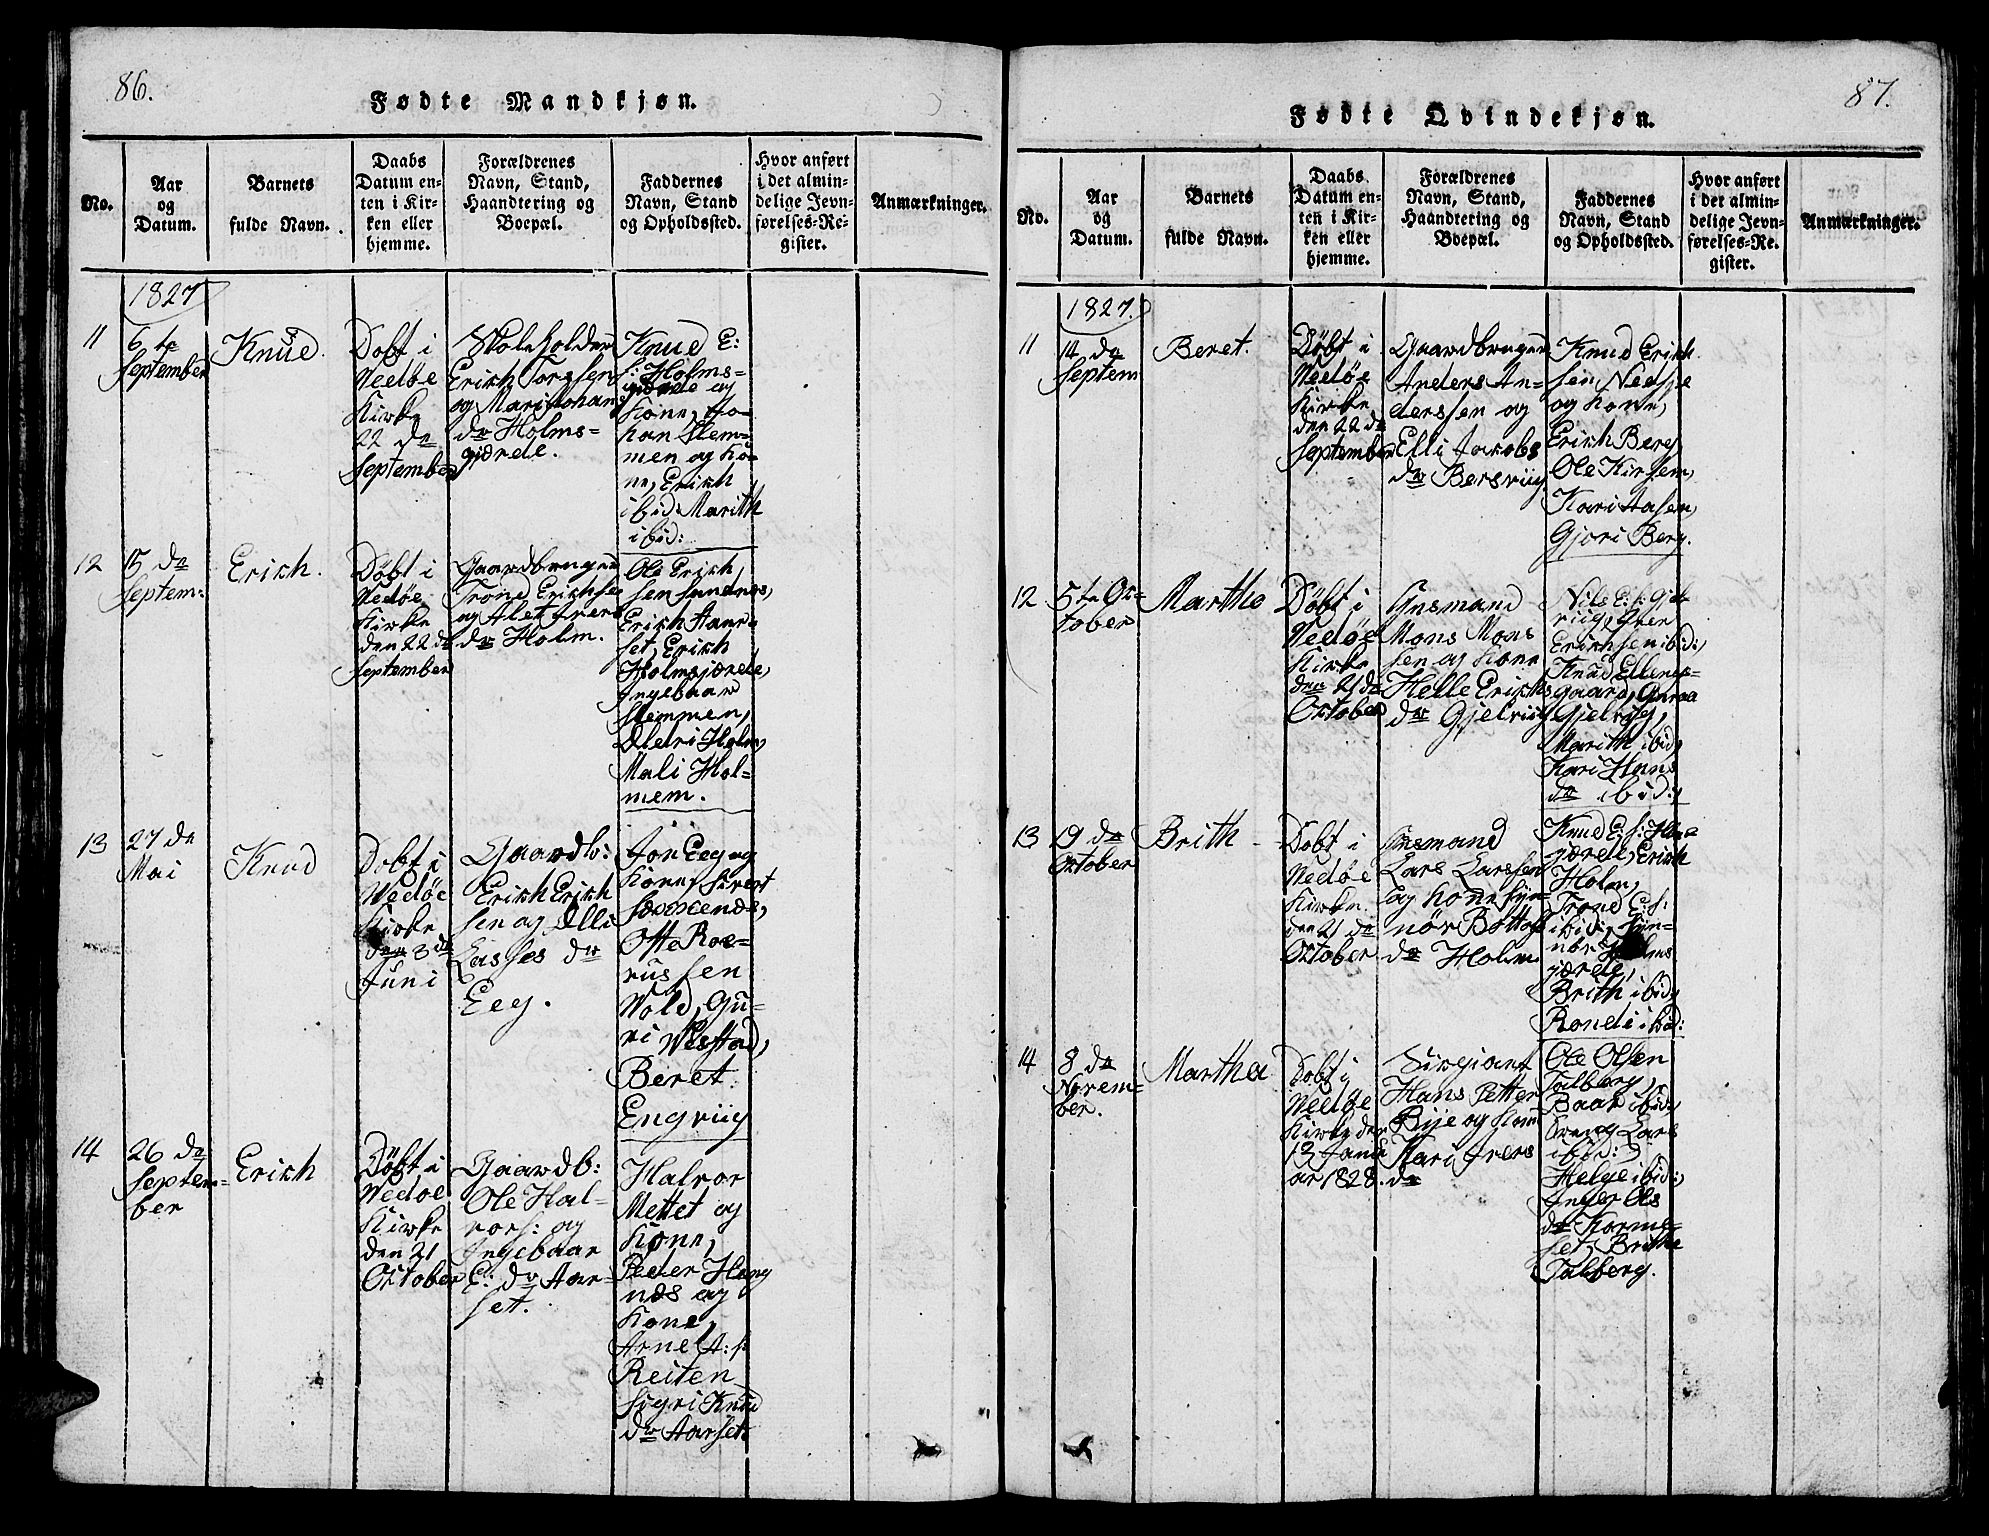 86.
Fødte Mandkjøn.
No.
Aar
og
Datum.
Barnets
fulde Navn.
Daabs
Datum en-
ten i Kir-
ken eller
hjemme.
Forældrenes
Navn, Stand,
Haandtering og
Boepæl.
Faddernes
Navn, Stand
og Opholdssted.
Hvor anført
i det almin-
delige Jevn-
førelses-Re-
gister.
Anmærkninger.
1827
11
6te
September
Knud.
Døbt i
Vedøe
Kirke
22 de
September
Skoleholder
Erich Torssen
og Mari Johans
dr Holms-
gjærde.
Knud E:
s: Holms-
gjærde og
Kone, Jo-
han Stem-
men og Ko-
ne, Erich
ibid: Marith
ibid:
12
15 de
Septem:
Erich.
Døbt i
Vedøe
Kirke
den 22 de
September
Gaardbruger
Trond Erichsen
og Alet Ivers
dr Holm.
Ole Erich
sen Sandnes,
Erich Aar-
set, Erich
Holmsjærde,
Ingebaar
Stemmen,
Holm,
Mali Hol-
mem.
13
27 de
Mai
Knud
Døbt i
Vedøe
Kirke
den 3 de
Juni
Gaardb:
Erich Erich
sen og Elli
Lasses dr
Eeg.
Jon Eeg og
Kone, Sivert
Otte Roe-
russen
Wold, Gu-
ri Westad,
Beret
Engviig
14
26 de
Septem-
ber
Erich
Døbt i
Vedøe
Kirke
den 21
October
Gaardb:
Ole Hal-
vors: og
Ingebaar
E: dr Aar-
set.
Halvor
Mettet og
Kone,
Peder Houg
næs og
Kone,
Arne A: s:
Reiten
Sigri Knud
dr Aarset
87.
Fødte Qvindekjøn.
No.
Aar
og
Datum.
Barnets
fulde Navn.
Daabs
Datum en-
ten i Kir-
ken eller
hjemme.
Forældrenes
Navn, Stand,
Haandtering og
Boepæl.
Faddernes
Navn, Stand
og Opholdssted.
Hvor anført
i det almin-
delige Jevn-
førelses-Re-
gister.
Anmærkninger.
1827.
11
14 de
Septem
Beret.
Døbt i
Vedøe
Kirke
den 22 de
September
Gaardbruger
Anders An-
derssen og
Elli Jacobs
dr Bersviig
Knud Erich
sen Nedse
og Kone,
Erich Berg
Ole Kirsem,
Kari Aasen,
Gjøri Berg.
12
5te Oc-
tober
Martho
Døbt i
Vedøe
Kirke
den 21 de
October
Huusmand
Mons Mons
sen og Kone
Helle Erichs
dr Gjelviig
Nils E: s: Gjel
viig, Iver
Erichsen ibid:,
Knud Ellenes-
gaard, Guroe
Gjelviig,
Marith ibid,
Kari Hans
dr ibid:
13
19 de
October
Brith
Døbt i
Vedøe
Kirke
den 21 de
October
Huusmand
Lars Larssen
og Kone Syn-
nør Bottolfs
dr Holm
Knud E: s: Holm-
gjærde, Erich
Holm,
Trond E: s:
ibid, Syn-
nør Holms
jærde,
Brith ibid,
Rondi ibid:
14
8 de
Novem-
ber.
Martha
Døbt i
Vedøe
Kirke den
13 Janu
ar 1828.
Sergiant
Hans Petter
Bije og Kone
Mari Ivers
dr
Ole Olsen
Talberg,
Baar ibid:,
Dreng Lars
ibid:
Helge ibid:,
Inger Ols
dr Korme-
set, Brithe
Talberg.